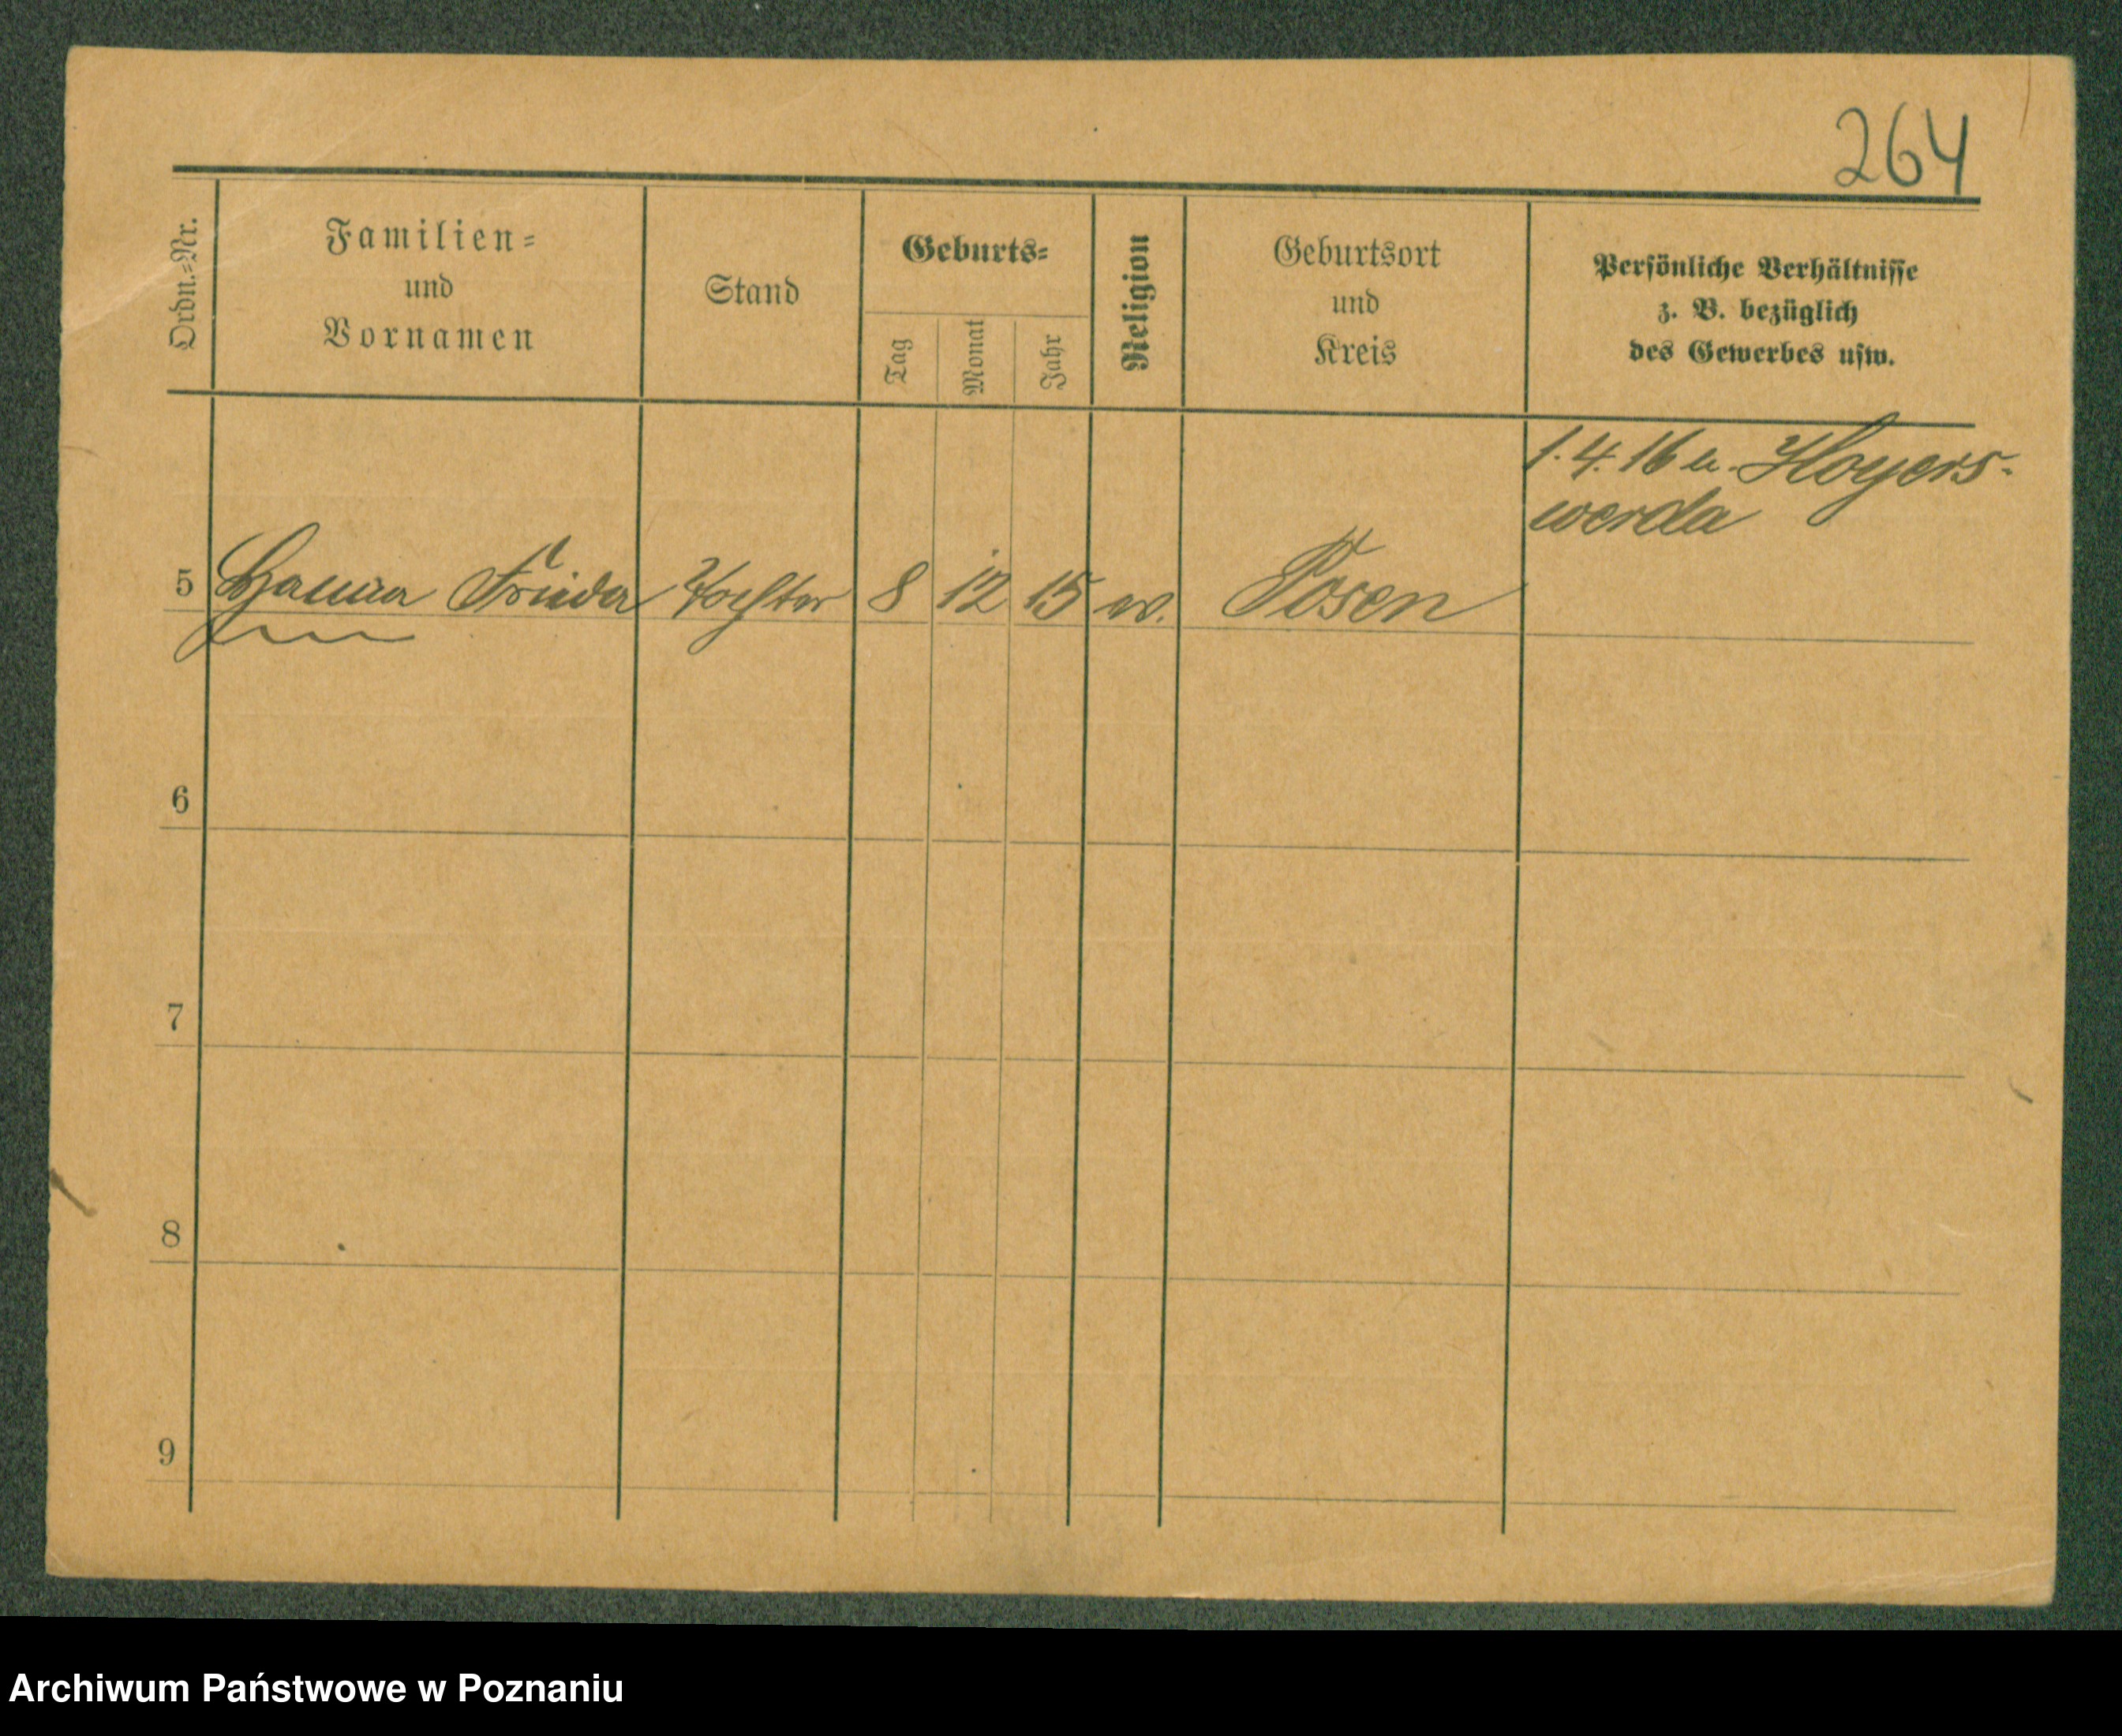 264
Ordn.-Nr.
Familien-
und
Vornamen
Stand
Geburts-
Tag
Monat
Jahr
Religion
Geburtsort
und
Kreis
Persönliche Verhältnisse
z. B. bezüglich
des Gewerbes usw.
1.4.16 n. Hoyers-
werda
5 Hanna Frieda Tochter 8 12 15 ev. Posen
6
7
8
9
Archiwum Państwowe w Poznaniu